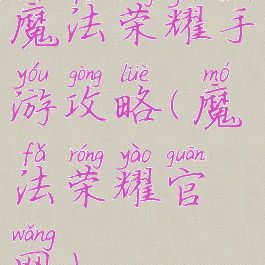 魔法荣耀手
yóu gōng lüè mó
游攻略(魔
fǎ róng yào guān
法荣耀官
wǎng
网)